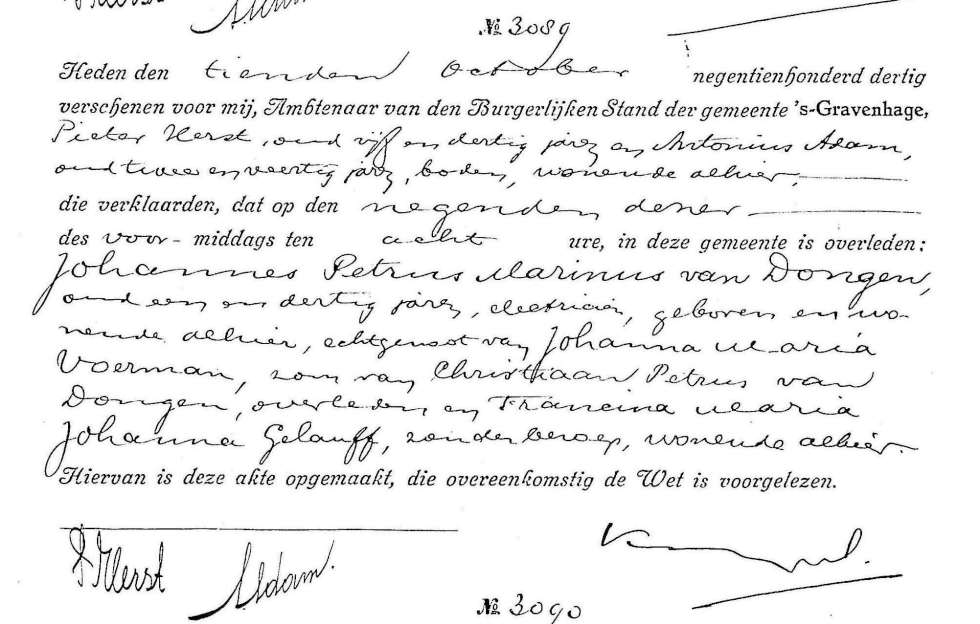 № 3089
Heden den tienden October negentienhonderd dertig
verschenen voor mij, Ambtenaar van den Burgerlijken Stand der gemeente 's-Gravenhage,
Pieter Herst, oud vijf en dertig jaren en Antonius Adam,
oud twee en veertig jaren, boden, wonende alhier,
die verklaarden, dat op den negenden dezer
des voor-middags ten acht ure, in deze gemeente is overleden:
Johannes Petrus Marinus van Dongen,
oud een en dertig jaren, electricien, geboren en wo-
nende alhier, echtgenoot van Johanna Maria
Voerman, zoon van Christiaan Petrus van
Dongen, overleden en Francina Maria
Johanna Gelauff, zonder beroep, wonende alhier.
Hiervan is deze akte opgemaakt, die overeenkomstig de Wet is voorgelezen.
P Herst AAdam.
№ 3090